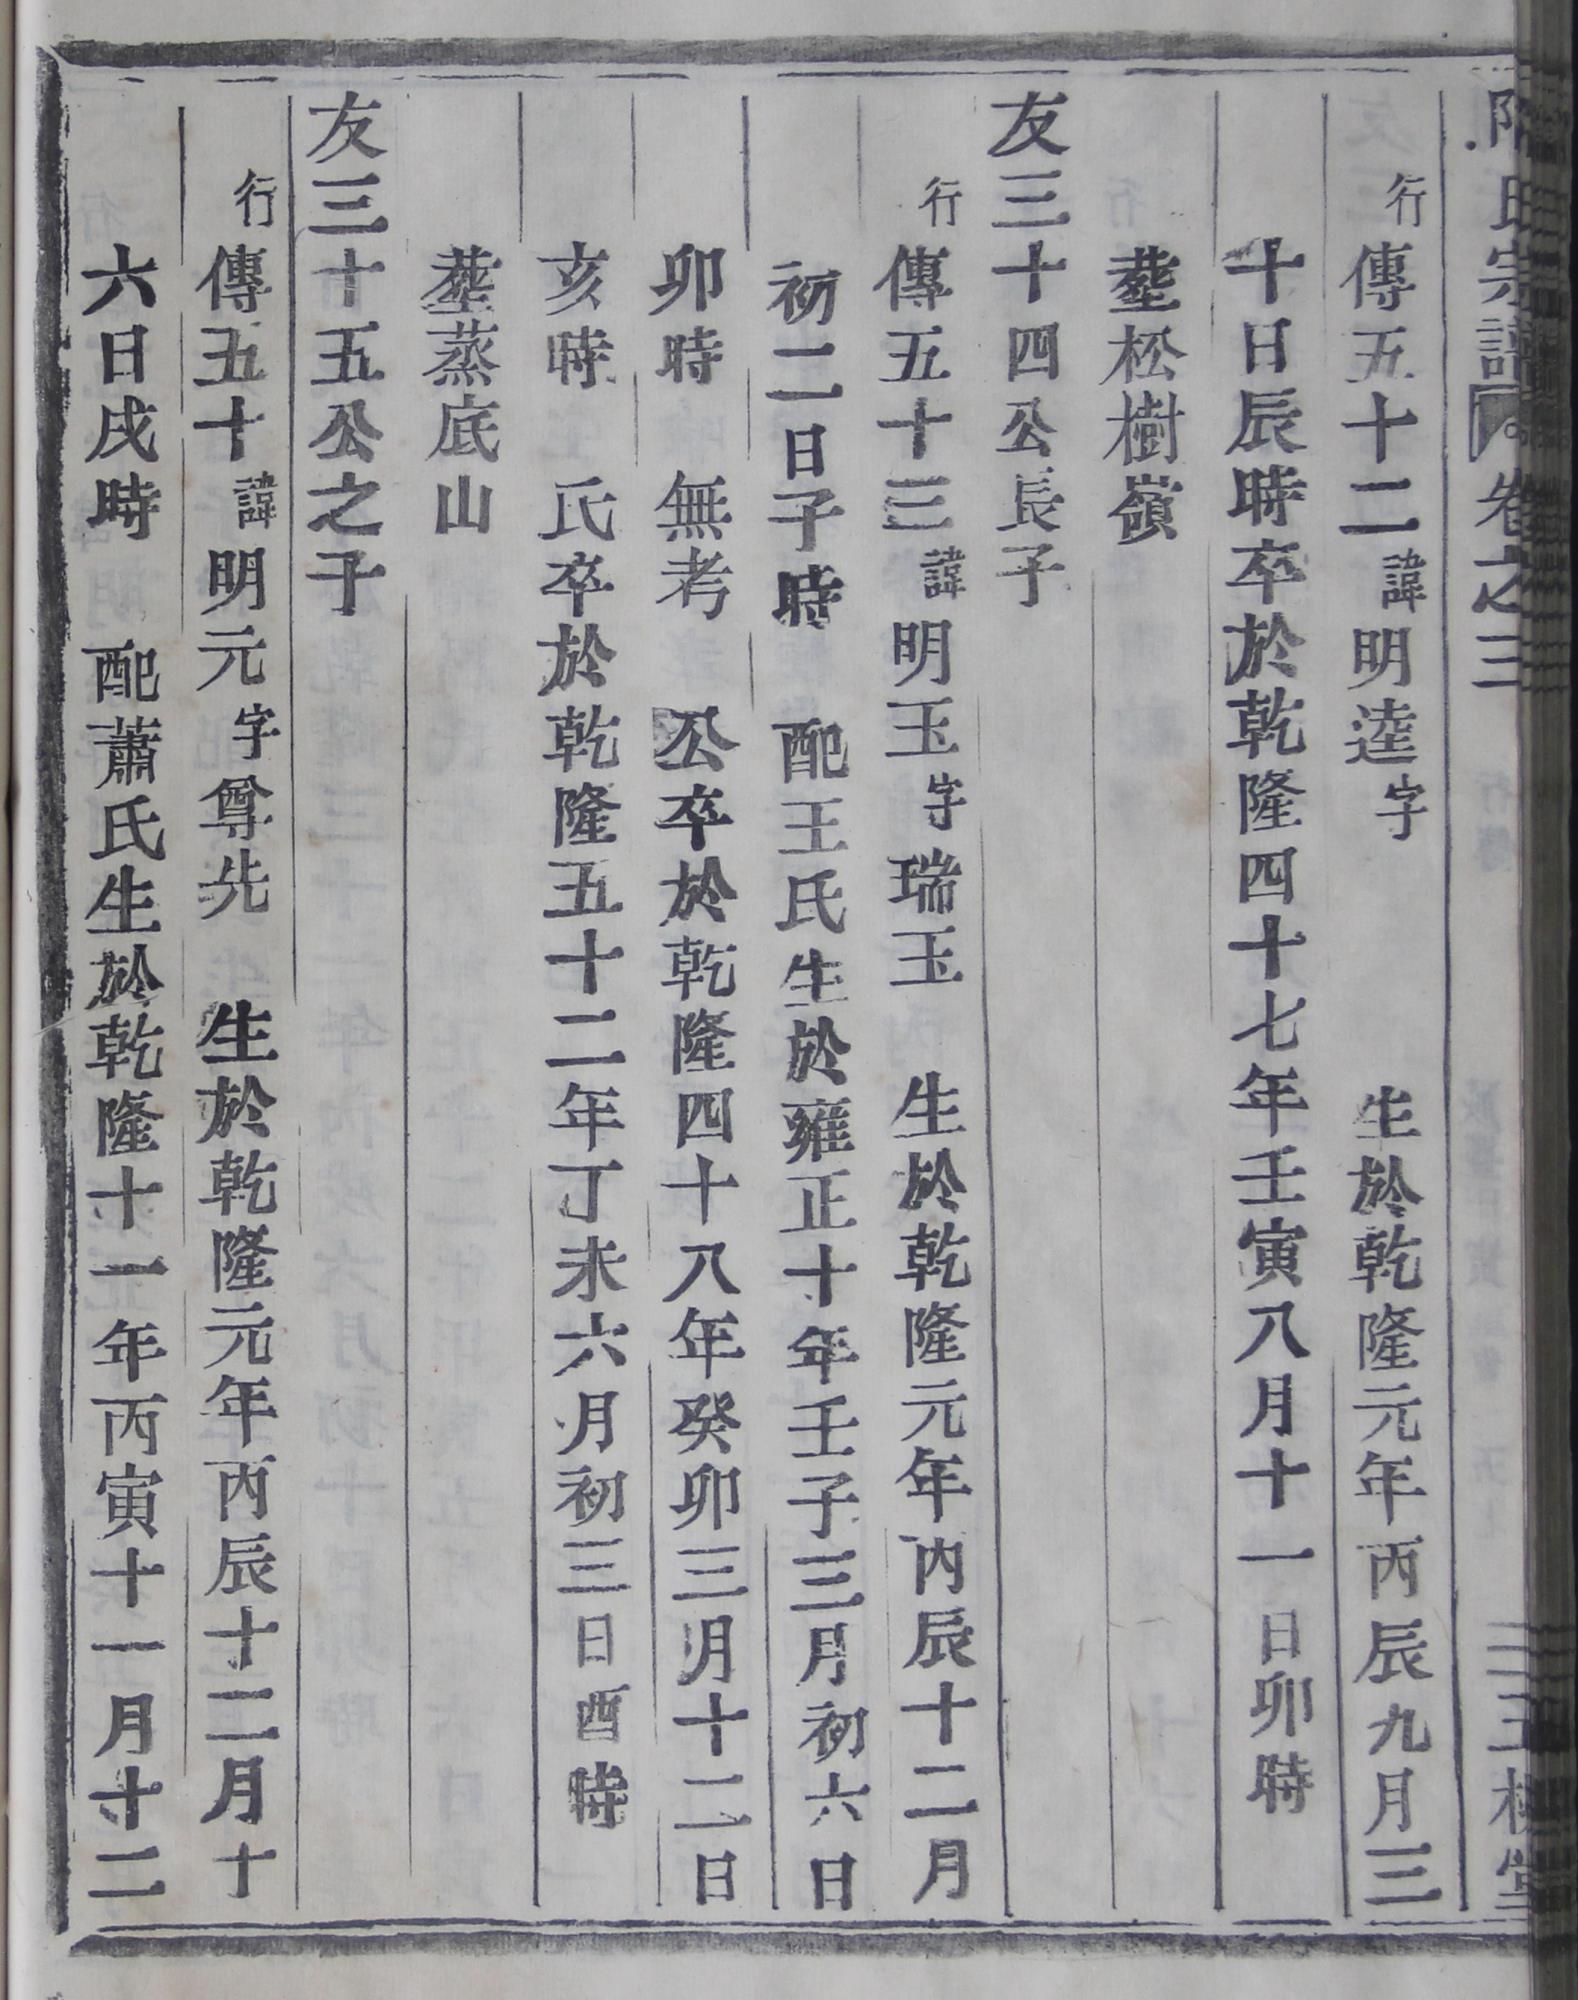 氏宗譜 卷之三
行傳五十二諱明逵字 生於乾隆元年丙辰九月三
十日辰時卒於乾隆四十七年壬寅八月十一日卯時
塟松樹嶺
友三十四公長子
行傳五十三諱明玉字瑞玉 生於乾隆元年丙辰十二月
初二日子時 配王氏生於雍正十年壬子三月初六日
卯時 無考 公卒於乾隆四十八年癸卯三月十二日
亥時 氏卒於乾隆五十二年丁未六月初三日酉時
塟蒸底山
友三十五公之子
行傳五十諱明元字尊先 生於乾隆元年丙辰十二月十
六日戌時 配蕭氏生於乾隆十一年丙寅十一月十二